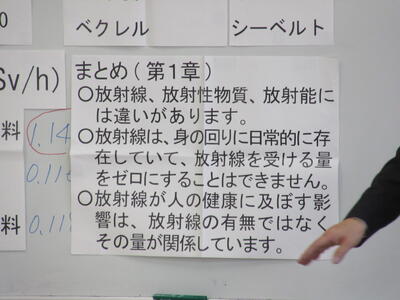 0
ベクレル
シーベルト
Sv/h)
まとめ(第1章)
○放射線、放射性物質、放射能に
は違いがあります。
料
1.14
○放射線は、身の回りに日常的に存
在していて、放射線を受ける量
をゼロにすることはできません。
0.11
○放射線が人の健康に及ぼす影
響は、放射線の有無ではなく
その量が関係しています。
料
0.11